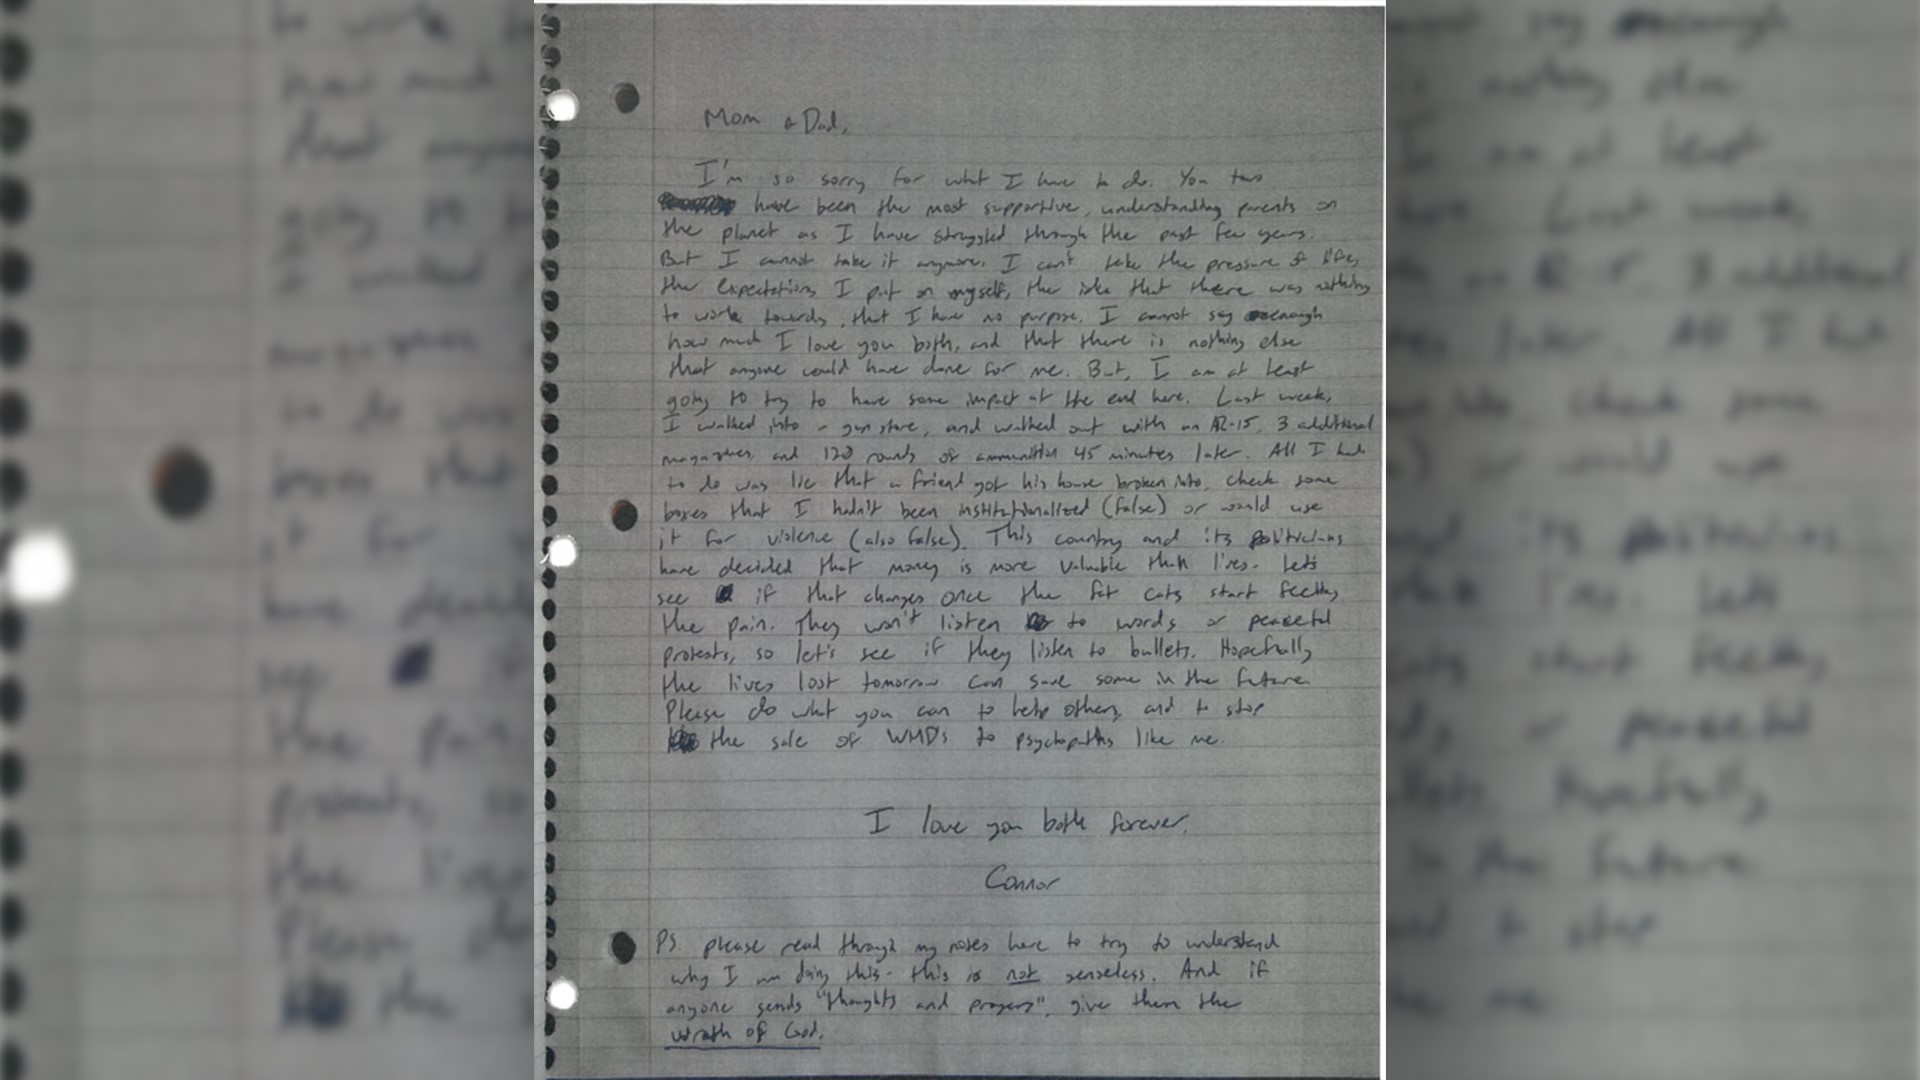 Mom & Dad,
I'm so sorry for what I have to do. You two
have been the most supportive, understanding parents on
the planet as I have struggled through the past few years.
But I cannot take it anymore. I can't take the pressure of life,
the expectations I put on myself, the idea that there was nothing
to work towards, that I have no purpose. I cannot say enough
how much I love you both, and that there is nothing else
that anyone could have done for me. But, I am at least
going to try to have some impact at the end here. Last week,
I walked into a gun store, and walked out with an AR-15, 3 additional
magazines, and 120 rounds of ammunition 45 minutes later. All I had
to do was lie that a friend got his house broken into, check some
boxes that I hadn't been institutionalized (false) or would use
it for violence (also false). This country and its politicians
have decided that money is more valuable than lives. Let's
see if that changes once the fat cats start feeling
the pain. They won't listen to words or peaceful
protests, so let's see if they listen to bullets. Hopefully
the lives lost tomorrow can save some in the future.
Please do what you can to help others, and to stop
the sale of WMDs to psycopaths like me.
I love you both forever.
Connor
PS. please read through my notes here to try to understand
why I am doing this - this is not senseless. And if
anyone sends "thoughts and prayers", give them the
wrath of God.